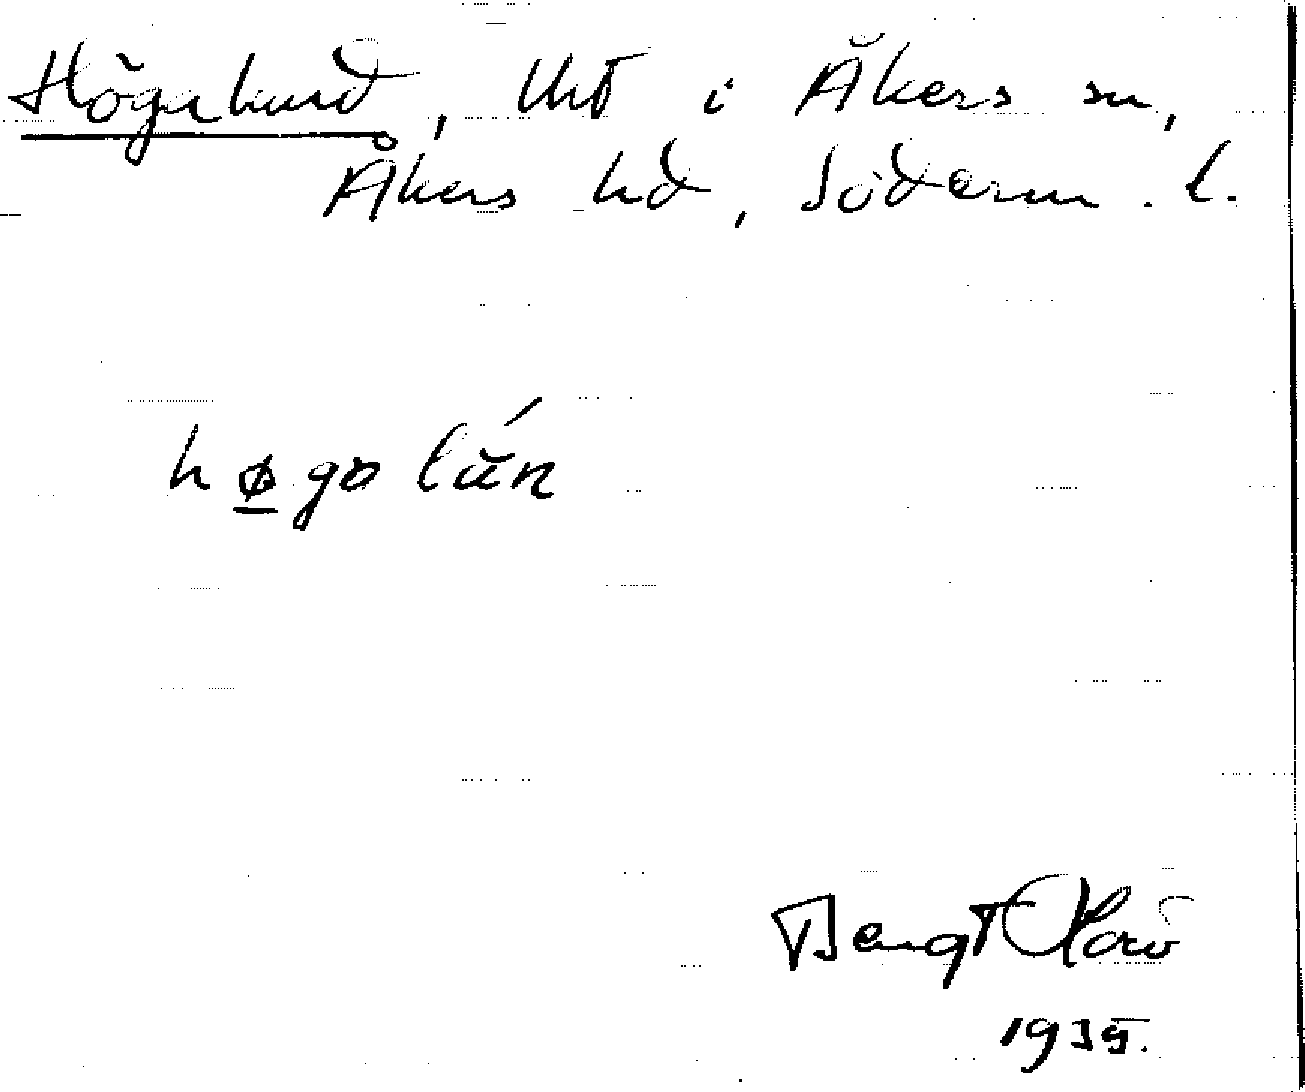 Högalund, tht i Åkers sn,
Åkers hd, Söderm. l.
høgolún
Bengt
1935.